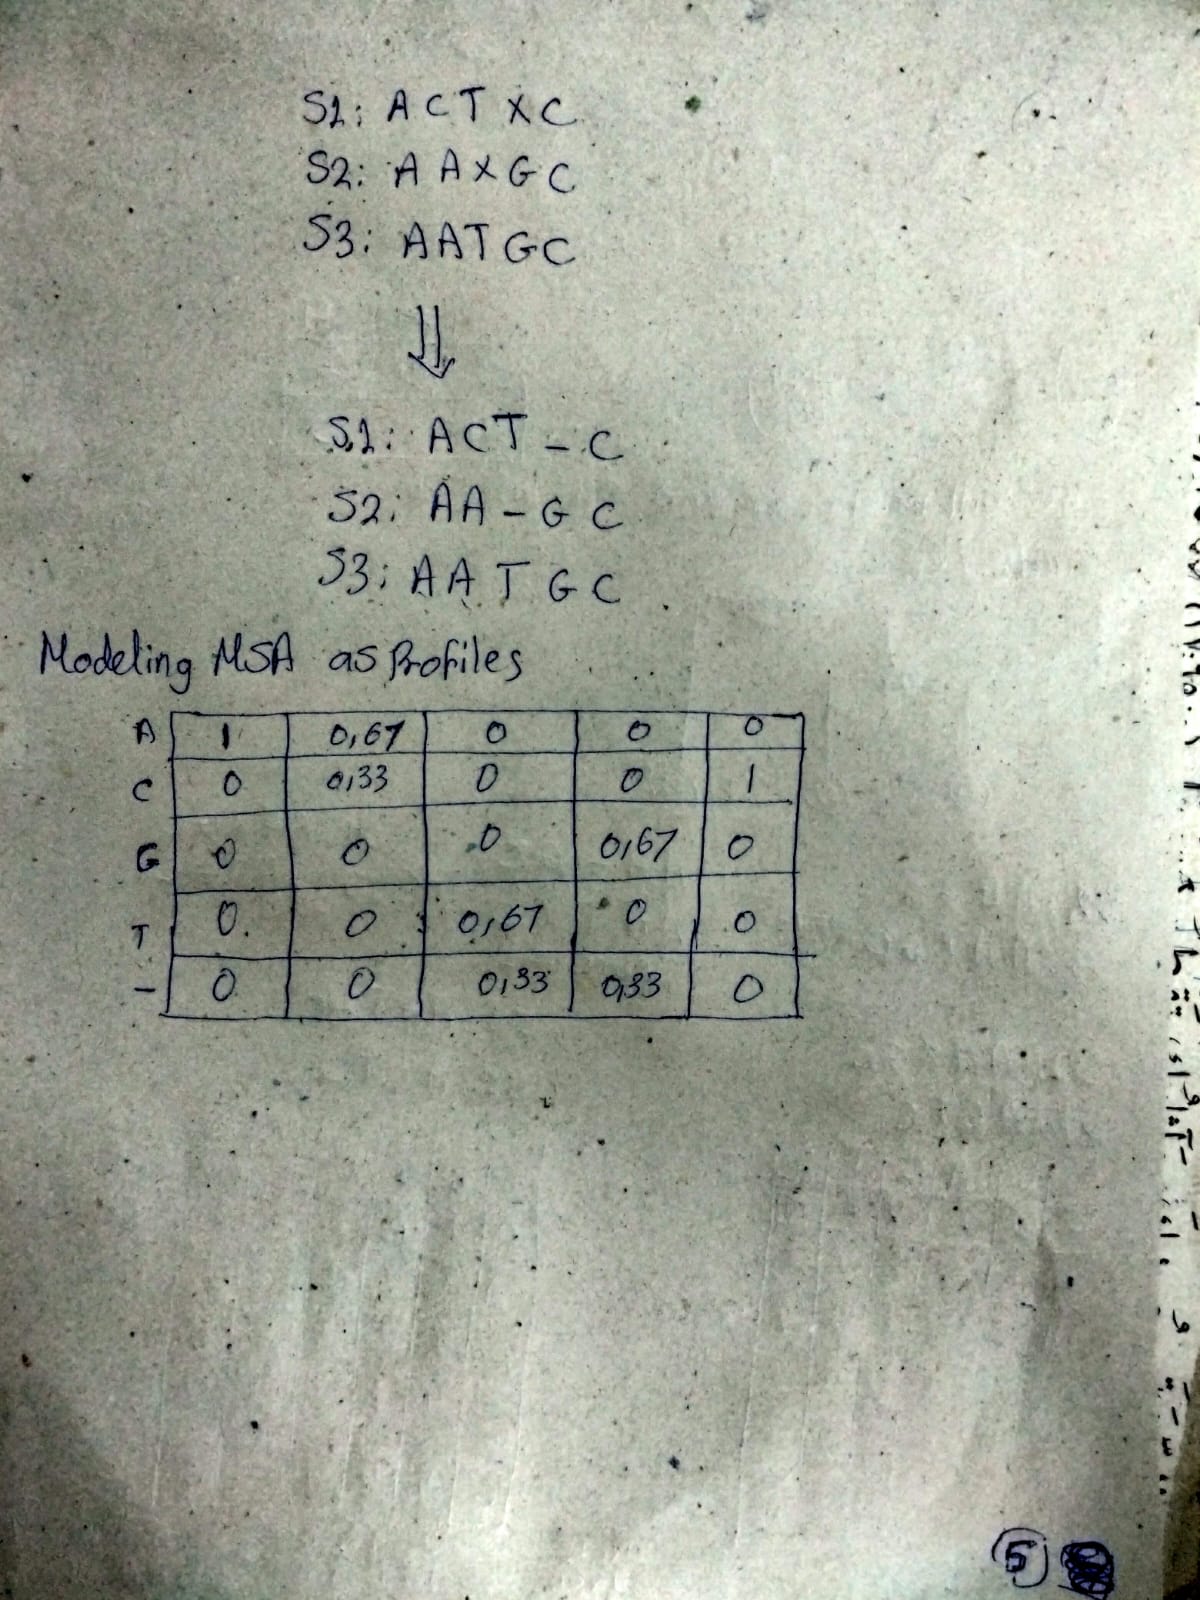 S1: ACTXC
S2: AAXGC
S3: AATGC
⇓
S1: ACT-C
S2: AA-GC
S3: AATGC
Modeling MSA as Profiles
A 1 0,67 0 0 0
C 0 0,33 0 0 1
G 0 0 0 0,67 0
T 0 0 0,67 0 0
- 0 0 0,33 0,33 0
5